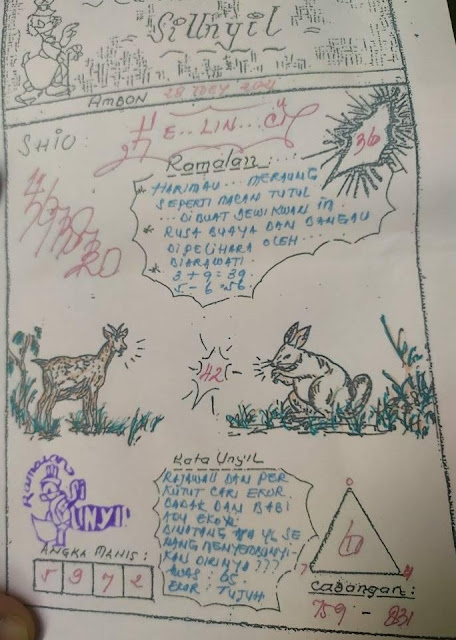 SiUnyil
AMBON
SHIO
E.. LIN... 
36
Ramalan:
* HARIMAU... MERAUNG
SEPERTI MACAN TUTUL
... DIBUAT SEWIKWAN IN
* RUSA BUAYA DAN BANGAU
DIPELIHARA OLEH
* DIARAWATI
3 + 9 = 39
5 - 6 = 56
20
42
Kata Unyil
RAJAWALI DAN PER
KUTUT CARI EKOR
CACAK DAN BABI
ADU EKOR
BINATANG APA YG SE
NANG MENYEMBUNYI-
KAN DIRINYA ???
AWAS : 65
EKOR : TUJUH
Ramalan
SI
UNYIL
ANGKA MANIS :
5 9 7 2
0
6
7
4
Cadangan:
759 - 831